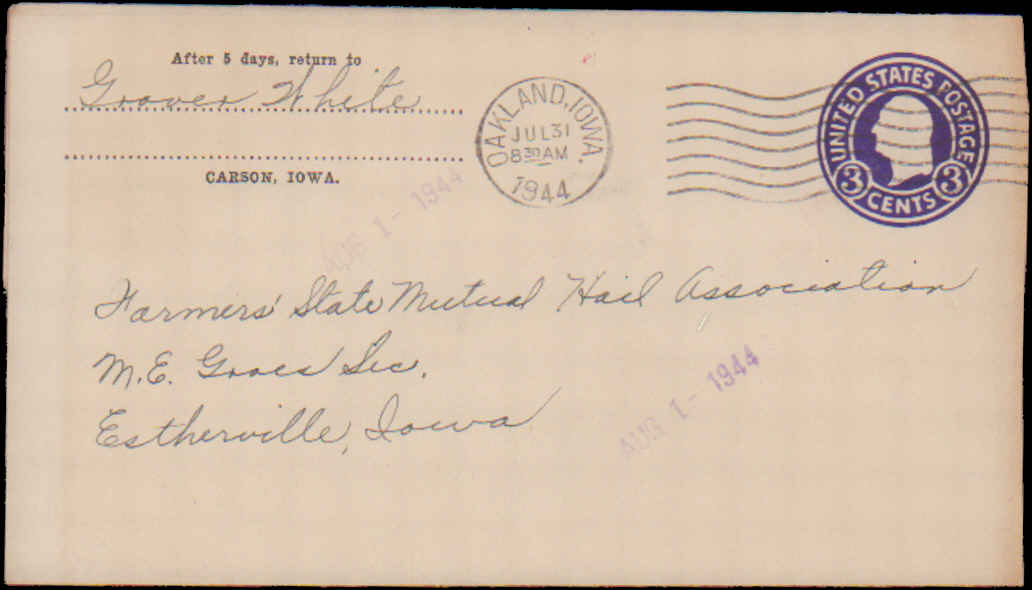 After 5 days, return to
Grover White
CARSON, IOWA.
OAKLAND, IOWA.
JUL 31
8 30 AM
1944
UNITED STATES POSTAGE
3 CENTS 3
AUG 1 - 1944
Farmers' State Mutual Hail Association
M.E. Groes Sec.
Estherville, Iowa
AUG 1 - 1944